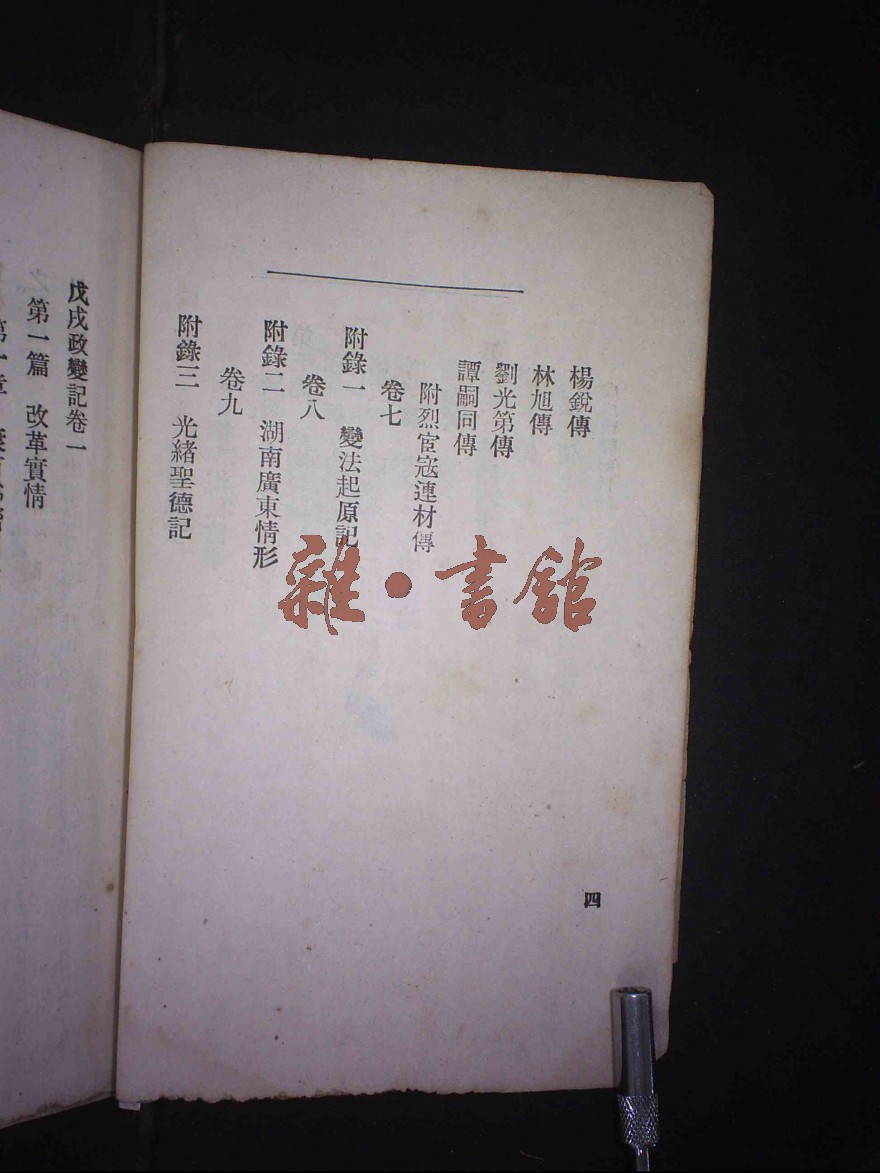 楊銳傳
林旭傳
劉光第傳
譚嗣同傳
附烈宦寇連材傳
卷七
附錄一 變法起原記
卷八
附錄二 湖南廣東情形
卷九
附錄三 光緒聖德記
四
雜·書館
戊戌政變記卷一
第一篇 改革實情
第一章